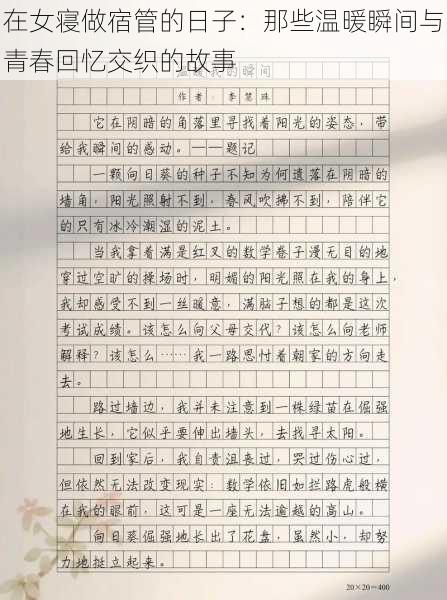 在女寝做宿管的日子：那些温暖瞬间与
青春回忆交织的故事
温暖我的瞬间
作者：李慧珠
它在阴暗的角落里寻找着阳光的姿态，带
给我瞬间的感动。——题记
一颗向日葵的种子不知为何遗落在阴暗的
墙角，阳光照射不到，春风吹拂不到，陪伴它
的只有冰冷潮湿的泥土。
当我拿着满是红叉的数学卷子漫无目的地
穿过空旷的操场时，明媚的阳光照在我的身上，
我却感受不到一丝暖意，满脑子想的都是这次
考试成绩。该怎么向父母交代？该怎么向老师
解释？该怎么……我一路思忖着朝家的方向走
去。
路过墙边，我并未注意到一株绿苗在倔强
地生长，它似乎要伸出墙头，去找寻太阳。
回到家后，我自责沮丧过，哭过伤心过，
但依然无法改变现实：数学依旧如拦路虎般横
在我的眼前，这可是一座无法逾越的高山。
向日葵倔强地长出了花盘，虽然小，却努
力地挺立起来。
20×20=400